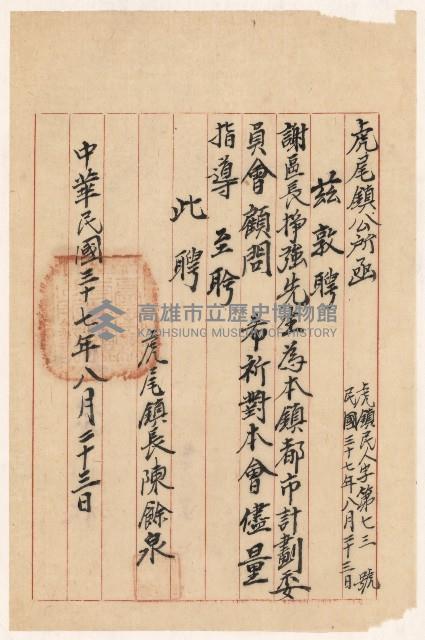 虎尾鎮公所函
虎鎮民人字第七三號
民國三十七年八月二十三日
茲敦聘
謝區長掙強先生為本鎮都市計劃委
員會顧問 希祈對本會儘量
指導 至盼
此聘
虎尾鎮長陳餘泉
中華民國三十七年八月二十三日
高雄市立歷史博物館
KAOHSIUNG MUSEUM OF HISTORY